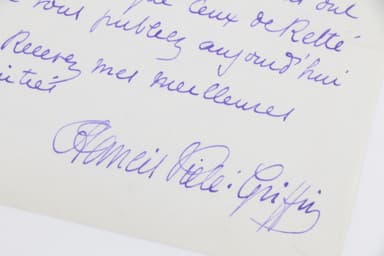 ont
que ceux de Retté
vous publiez aujourd'hui
Recevez mes meilleures
amitiés
Francis Vielé-Griffin